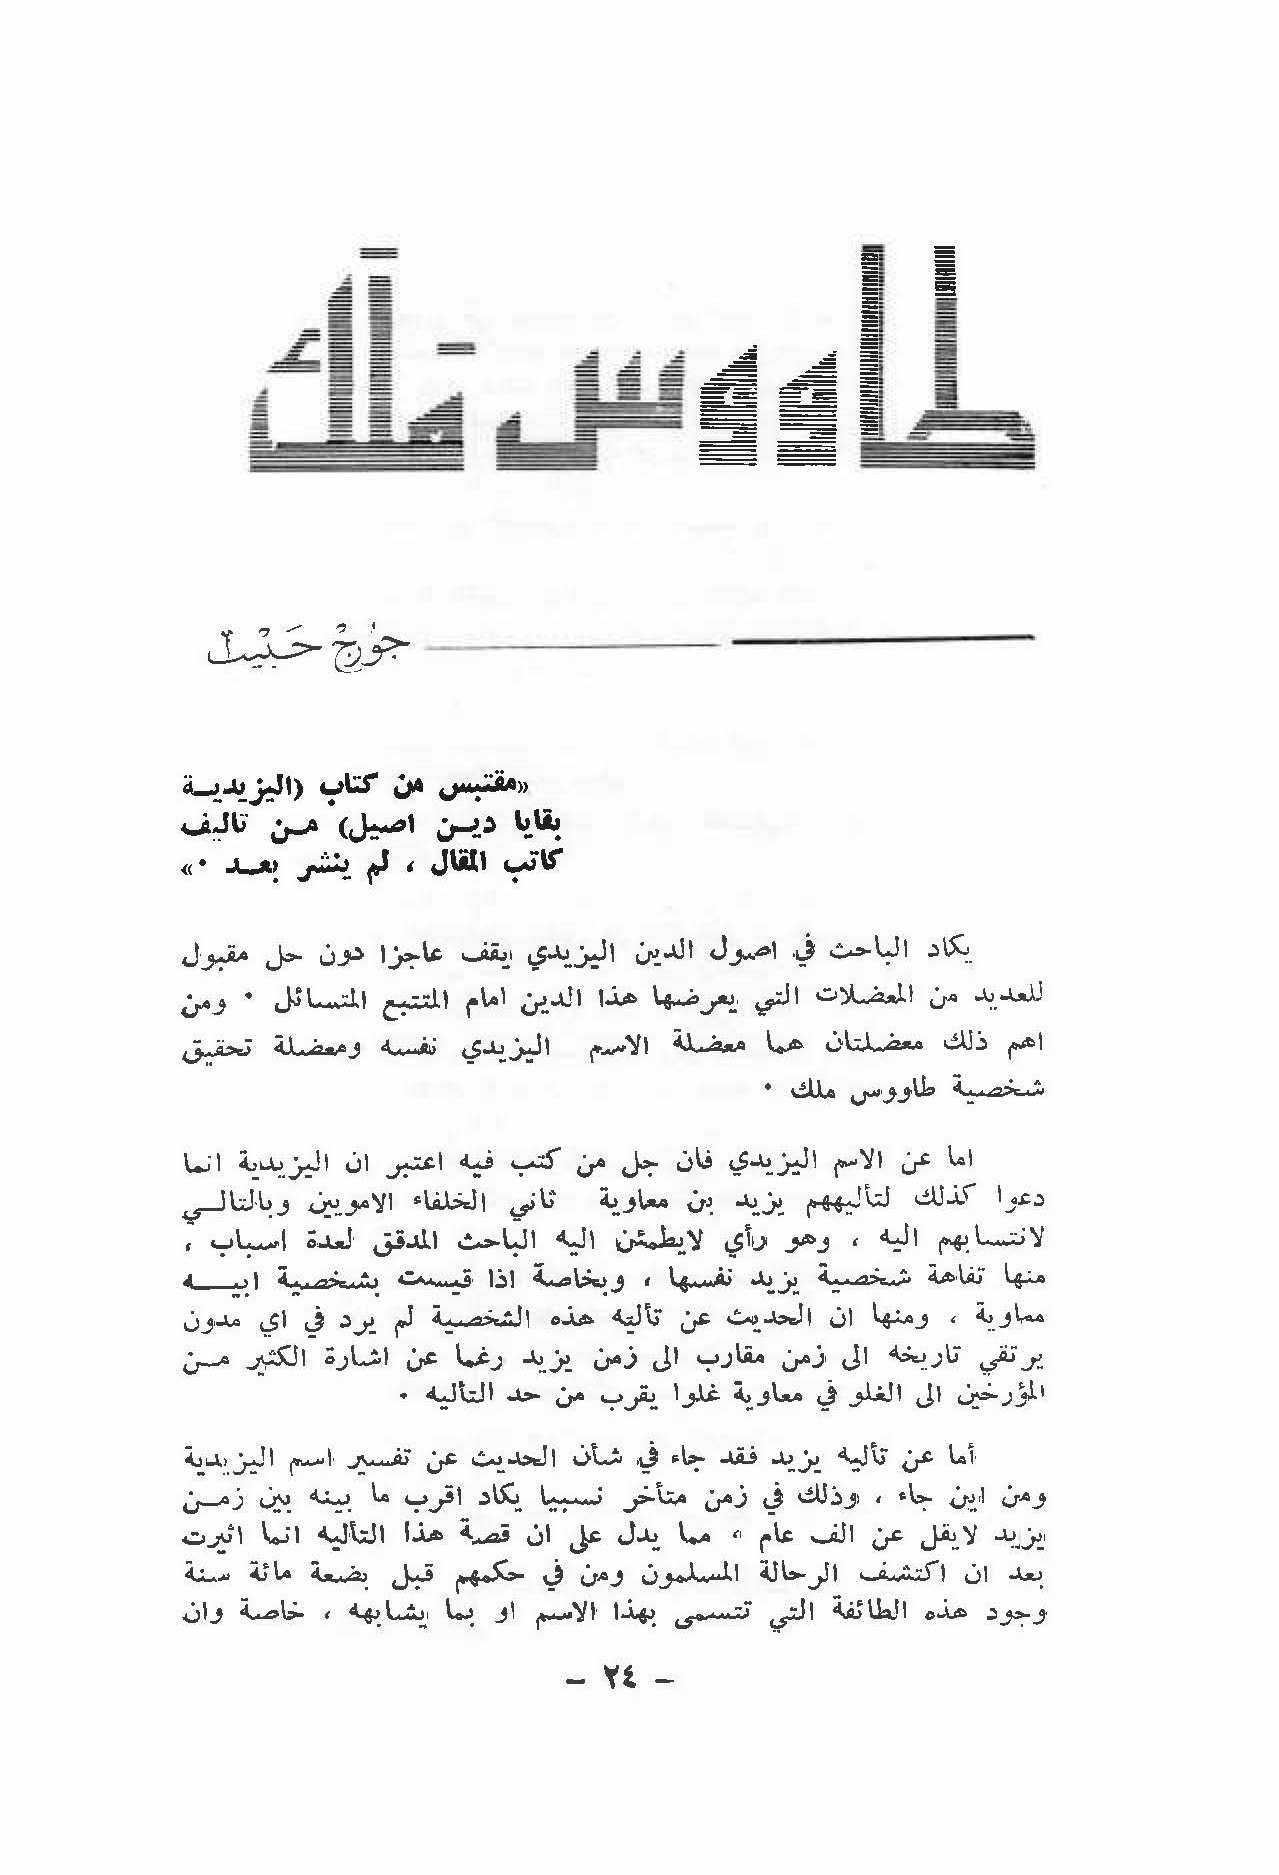 طاووس ملك
جورج حبيب
«مقتبس من كتاب (اليزيديـة
بقايا ديـن اصيل) مـن تاليف
كاتب المقال ، لم ينشر بعـد ٠»
يكاد الباحث في اصول الدين اليزيدي يقف عاجزا دون حل مقبول
للعديد من المعضلات التي يعرضها هذا الدين امام المتتبع المتسائل ٠ ومن
اهم ذلك معضلتان هما معضلة الاسم اليزيدي نفسه ومعضلة تحقيق
شخصية طاووس ملك ٠
اما عن الاسم اليزيدي فان جل من كتب فيه اعتبر ان اليزيدية انما
دعوا كذلك لتأليههم يزيد بن معاوية ثاني الخلفاء الامويين وبالتالـي
لانتسابهم اليه ، وهو رأي لايطمئن اليه الباحث المدقق لعدة اسباب ،
منها تفاهة شخصية يزيد نفسها ، وبخاصة اذا قيست بشخصية ابيـــه
معاوية ، ومنها ان الحديث عن تأليه هذه الشخصية لم يرد في اي مدون
يرتقي تاريخه الى زمن مقارب الى زمن يزيد رغما عن اشارة الكثير مـن
المؤرخين الى الغلو في معاوية غلوا يقرب من حد التأليه ٠
أما عن تأليه يزيد فقد جاء في شأن الحديث عن تفسير اسم اليزيدية
ومن اين جاء ، وذلك في زمن متأخر نسبيا يكاد اقرب ما بينه بين زمـن
يزيد لايقل عن الف عام ، مما يدل على ان قصة هذا التأليه انما اثيرت
بعد ان اكتشف الرحالة المسلمون ومن في حكمهم قبل بضعة مائة سنة
وجود هذه الطائفة التي تتسمى بهذا الاسم او بما يشابهه ، خاصة وان
— ٢٤ —